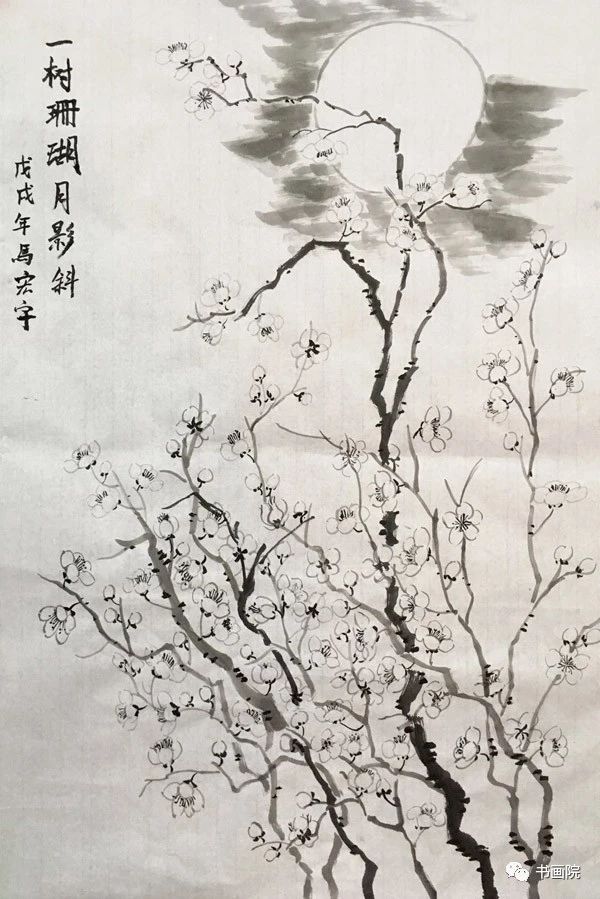 一树珊瑚月影斜
戊戌年馬宏宇
书画院